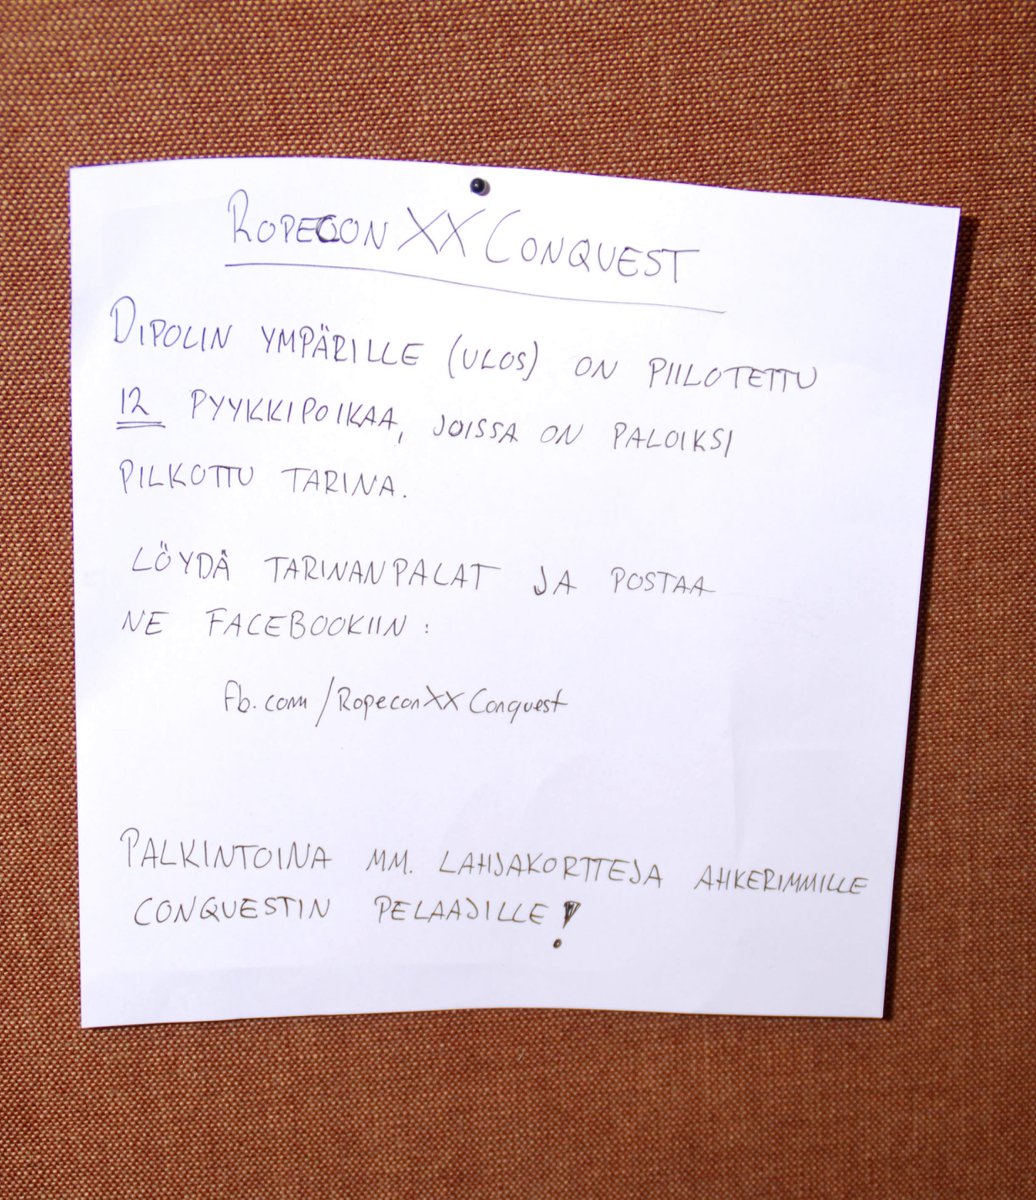 ROPECON XX CONQUEST
DIPOLIN YMPÄRILLE (ULOS) ON PIILOTETTU
12 PYYKKIPOIKAA, JOISSA ON PALOIKSI
PILKOTTU TARINA.
LÖYDÄ TARINANPALAT JA POSTAA
NE FACEBOOKIIN:
fb.com/RopeconXXConquest
PALKINTOINA MM. LAHJAKORTTEJA AHKERIMMILLE
CONQUESTIN PELAAJILLE!